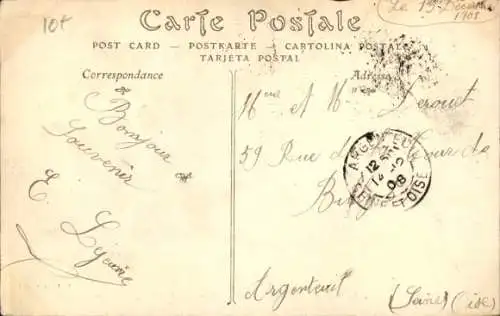 10t
Le 13 Décembre
1908
Carte Postale
POST CARD — POSTKARTE — CARTOLINA POSTALE
TARJETA POSTAL
Correspondance
Adresse
Bonjour
Souvenir
E. Lejeune
Mme et M. Derouet
59 Rue de
ARGENTEUIL
12
14 - 12
08
SEINE-ET-OISE
Argenteuil
(Seine Oise)